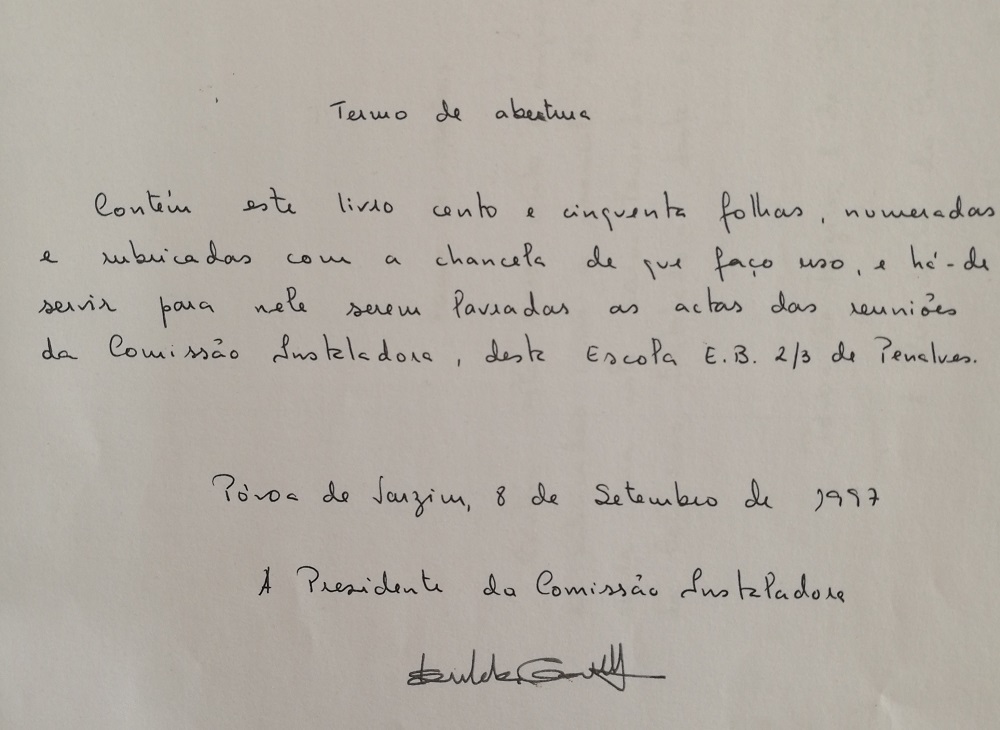 Termo de abertura
Contém este livro cento e cinquenta folhas, numeradas
e rubricadas com a chancela de que faço uso, e há-de
servir para nele serem lavradas as actas das reuniões
da Comissão Instaladora, desta Escola E.B. 2/3 de Penalves.
Póvoa de Varzim, 8 de Setembro de 1997
A Presidente da Comissão Instaladora